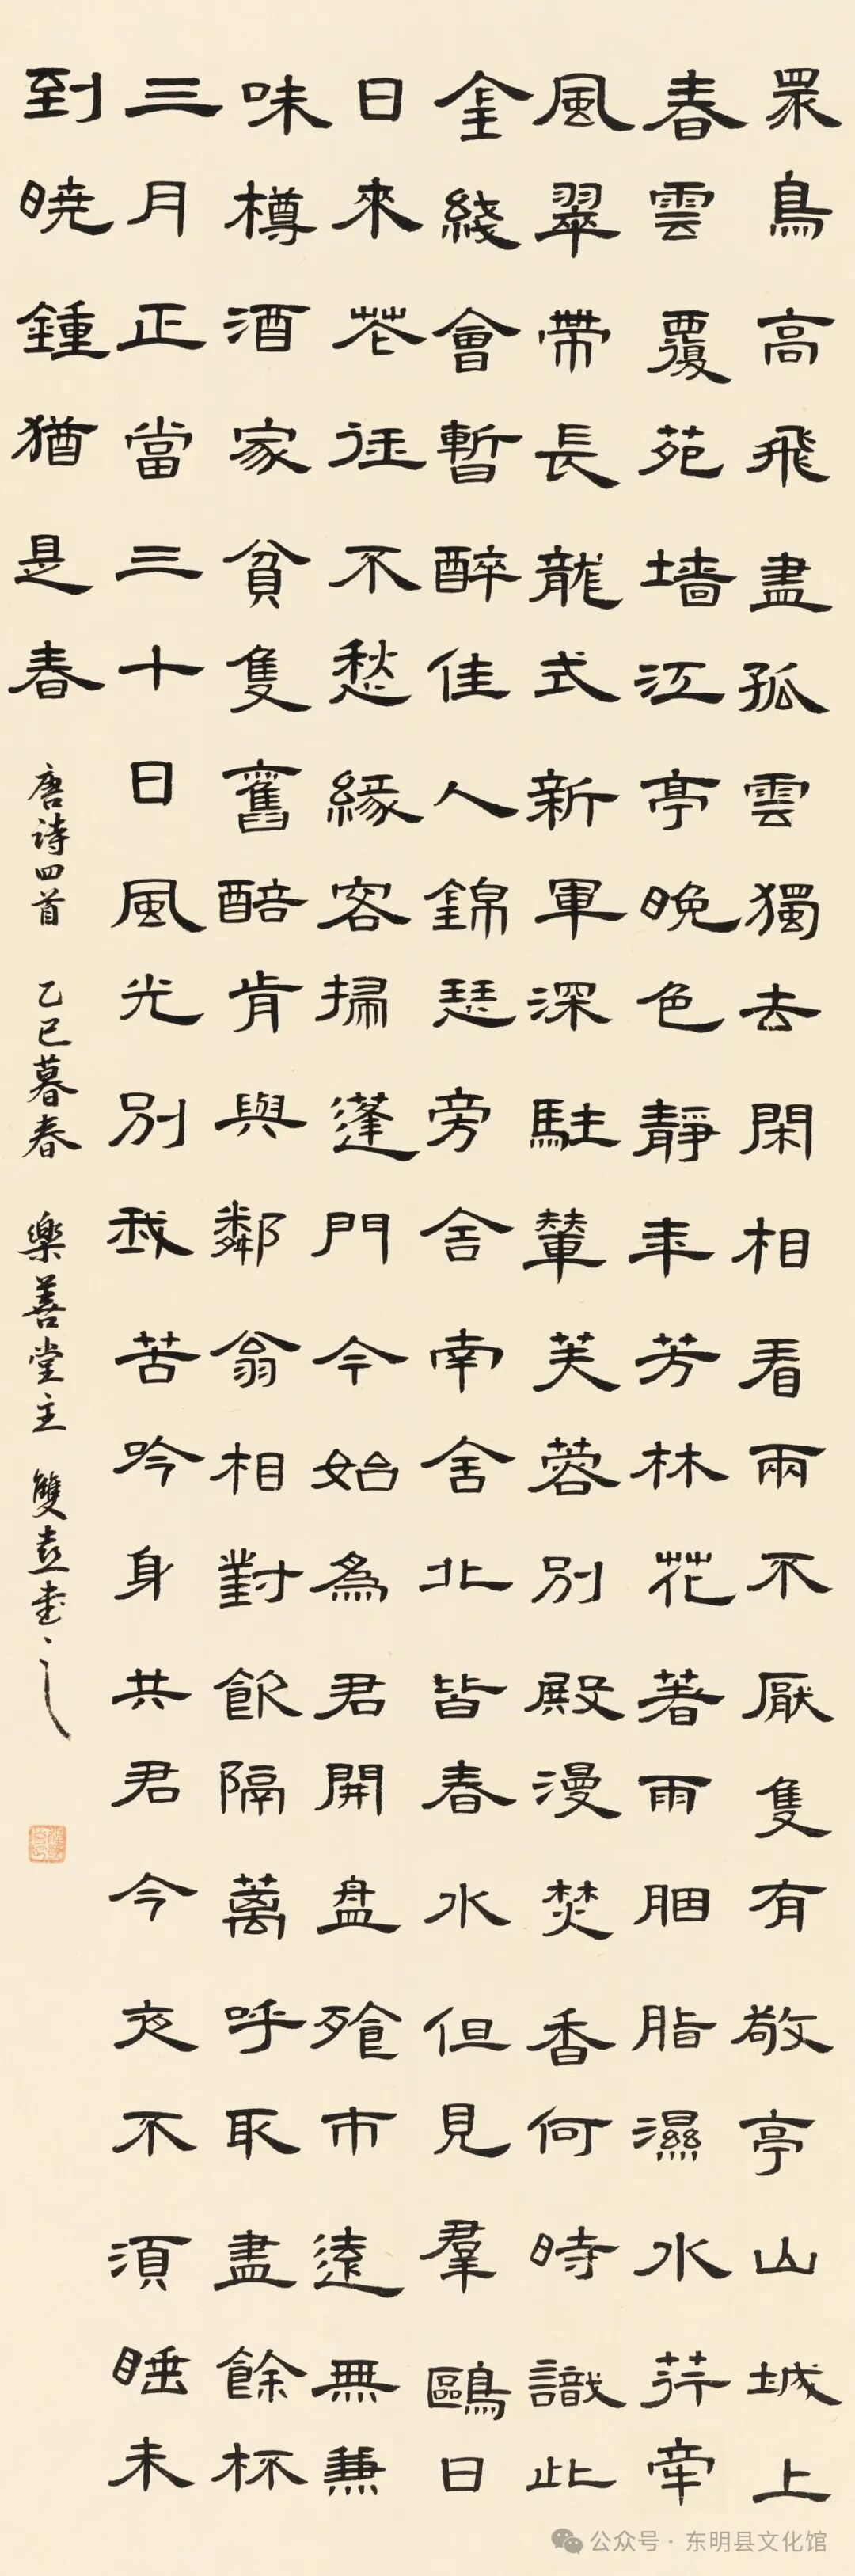 眾鳥高飛盡孤雲獨去閑相看兩不厭隻有敬亭山城上
春雲覆苑墻江亭晚色靜年芳林花著雨胭脂濕水荇牽
風翠帶長龍式新軍深駐輦芙蓉別殿漫焚香何時識此
金綫會暫醉佳人錦瑟旁舍南舍北皆春水但見羣鷗日
日來花徑不愁緣客掃蓬門今始為君開盤飧市遠無兼
味樽酒家貧隻舊醅肯與鄰翁相對飲隔萬呼取盡餘杯
三月正當三十日風光別我苦吟身共君今夜不須睡未
到曉鍾猶是春
唐詩四首 乙巳暮春 樂善堂主 雙喜書之
公众号·东明县文化馆